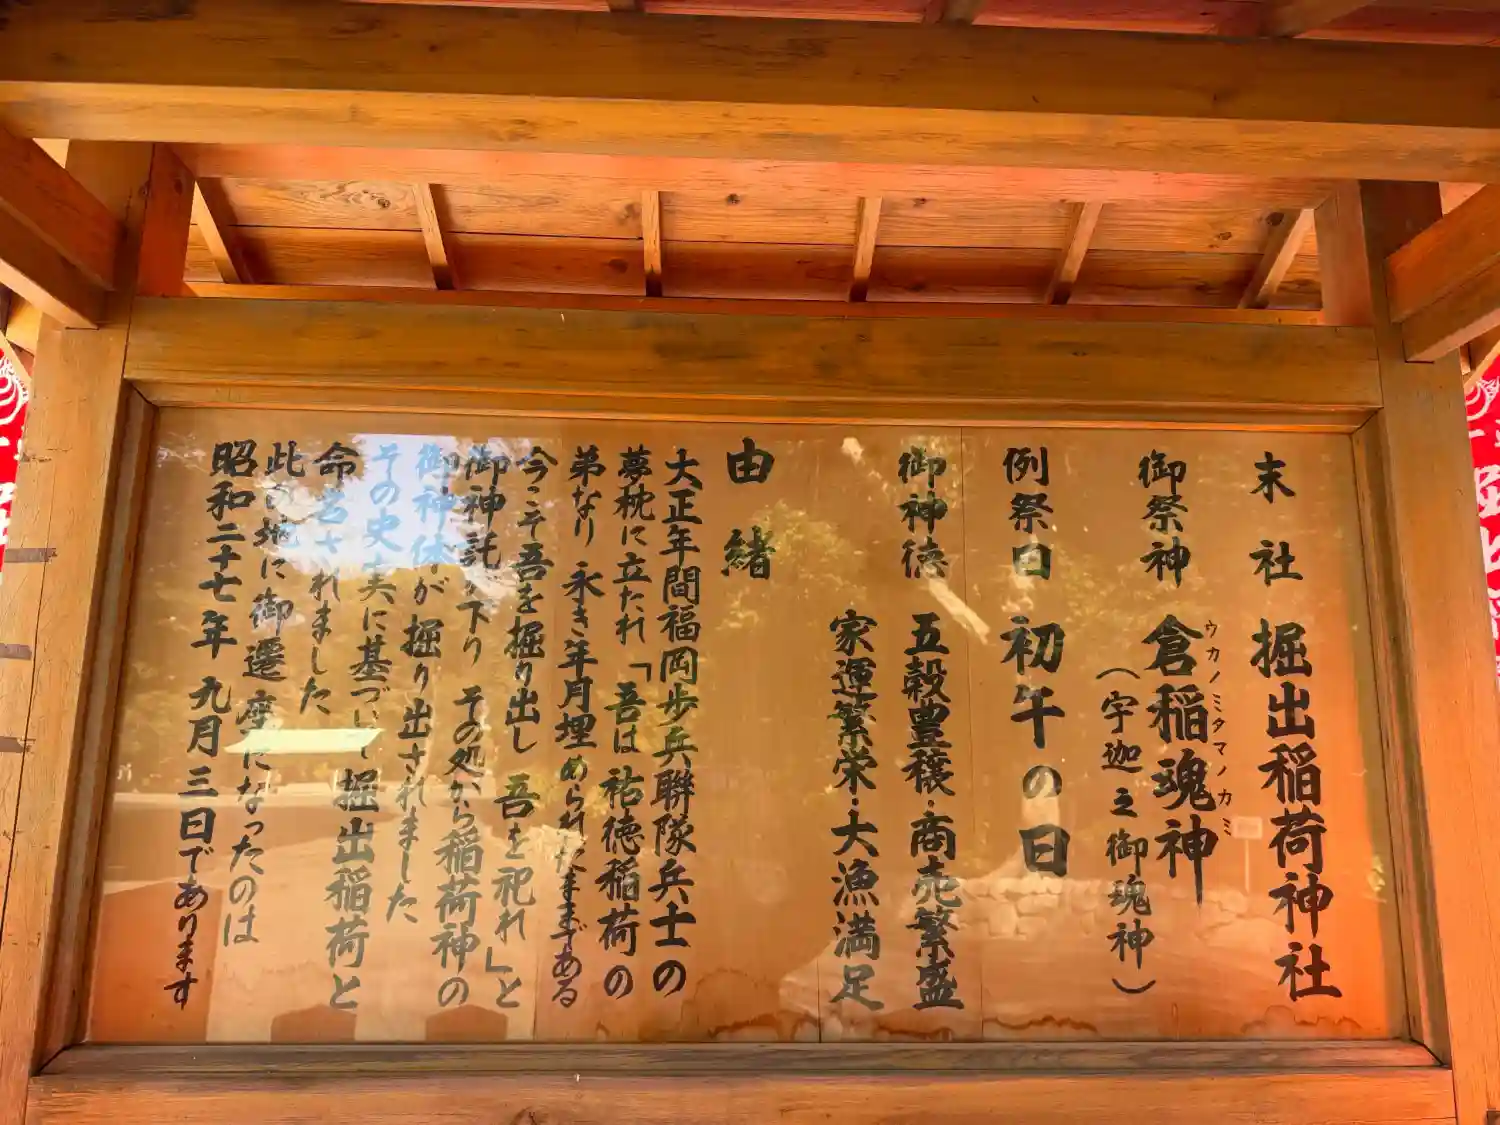 末社 掘出稲荷神社
御祭神 倉稲魂神
ウカノミタマノカミ
（宇迦之御魂神）
例祭日 初午の日
御神徳 五穀豊穣・商売繁盛
家運繁栄・大漁満足
由緒
大正年間福岡歩兵聯隊兵士の
夢枕に立たれ「吾は祐徳稲荷の
弟なり 永き年月埋められたままである
今こそ吾を掘り出し 吾を祀れ」と
御神託が下り その処から稲荷神の
御神体が掘り出されました
その史実に基づいて掘出稲荷と
命名されました
此の地に御遷座になったのは
昭和二十七年 九月三日であります